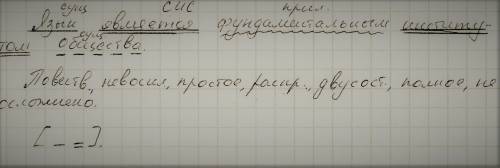 сущ СИС прил.
Язык является фундаментальным институ-
том общества.
сущ
Повеств., невоскл, простое, распр., двусост., полное, не
осложнено.
[ _ = ].